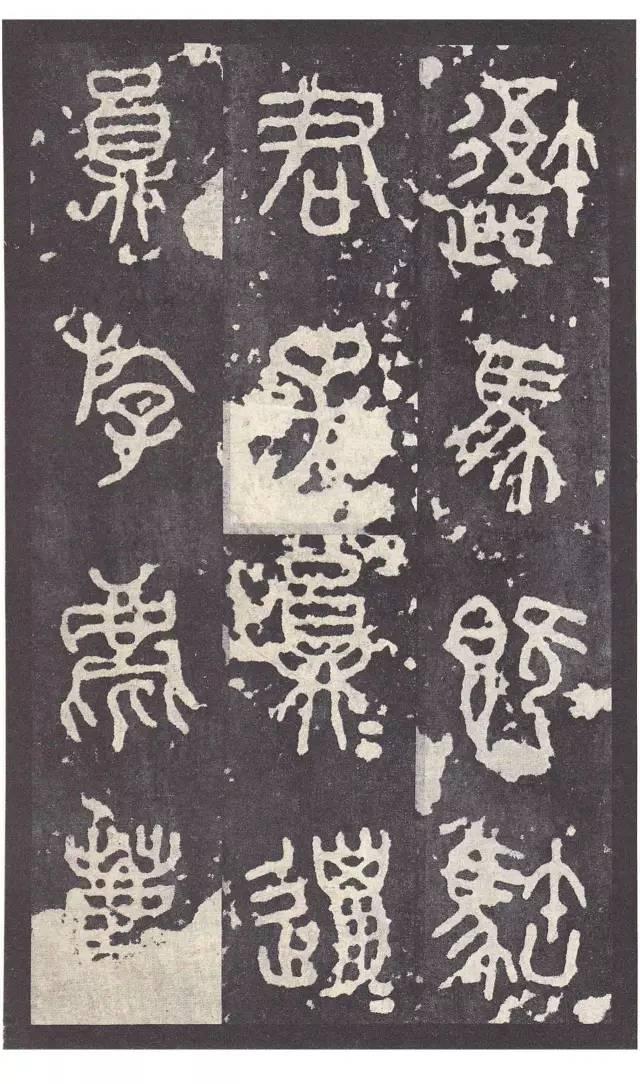 避馬既𩣡
君子員=邋=
員斿麀鹿